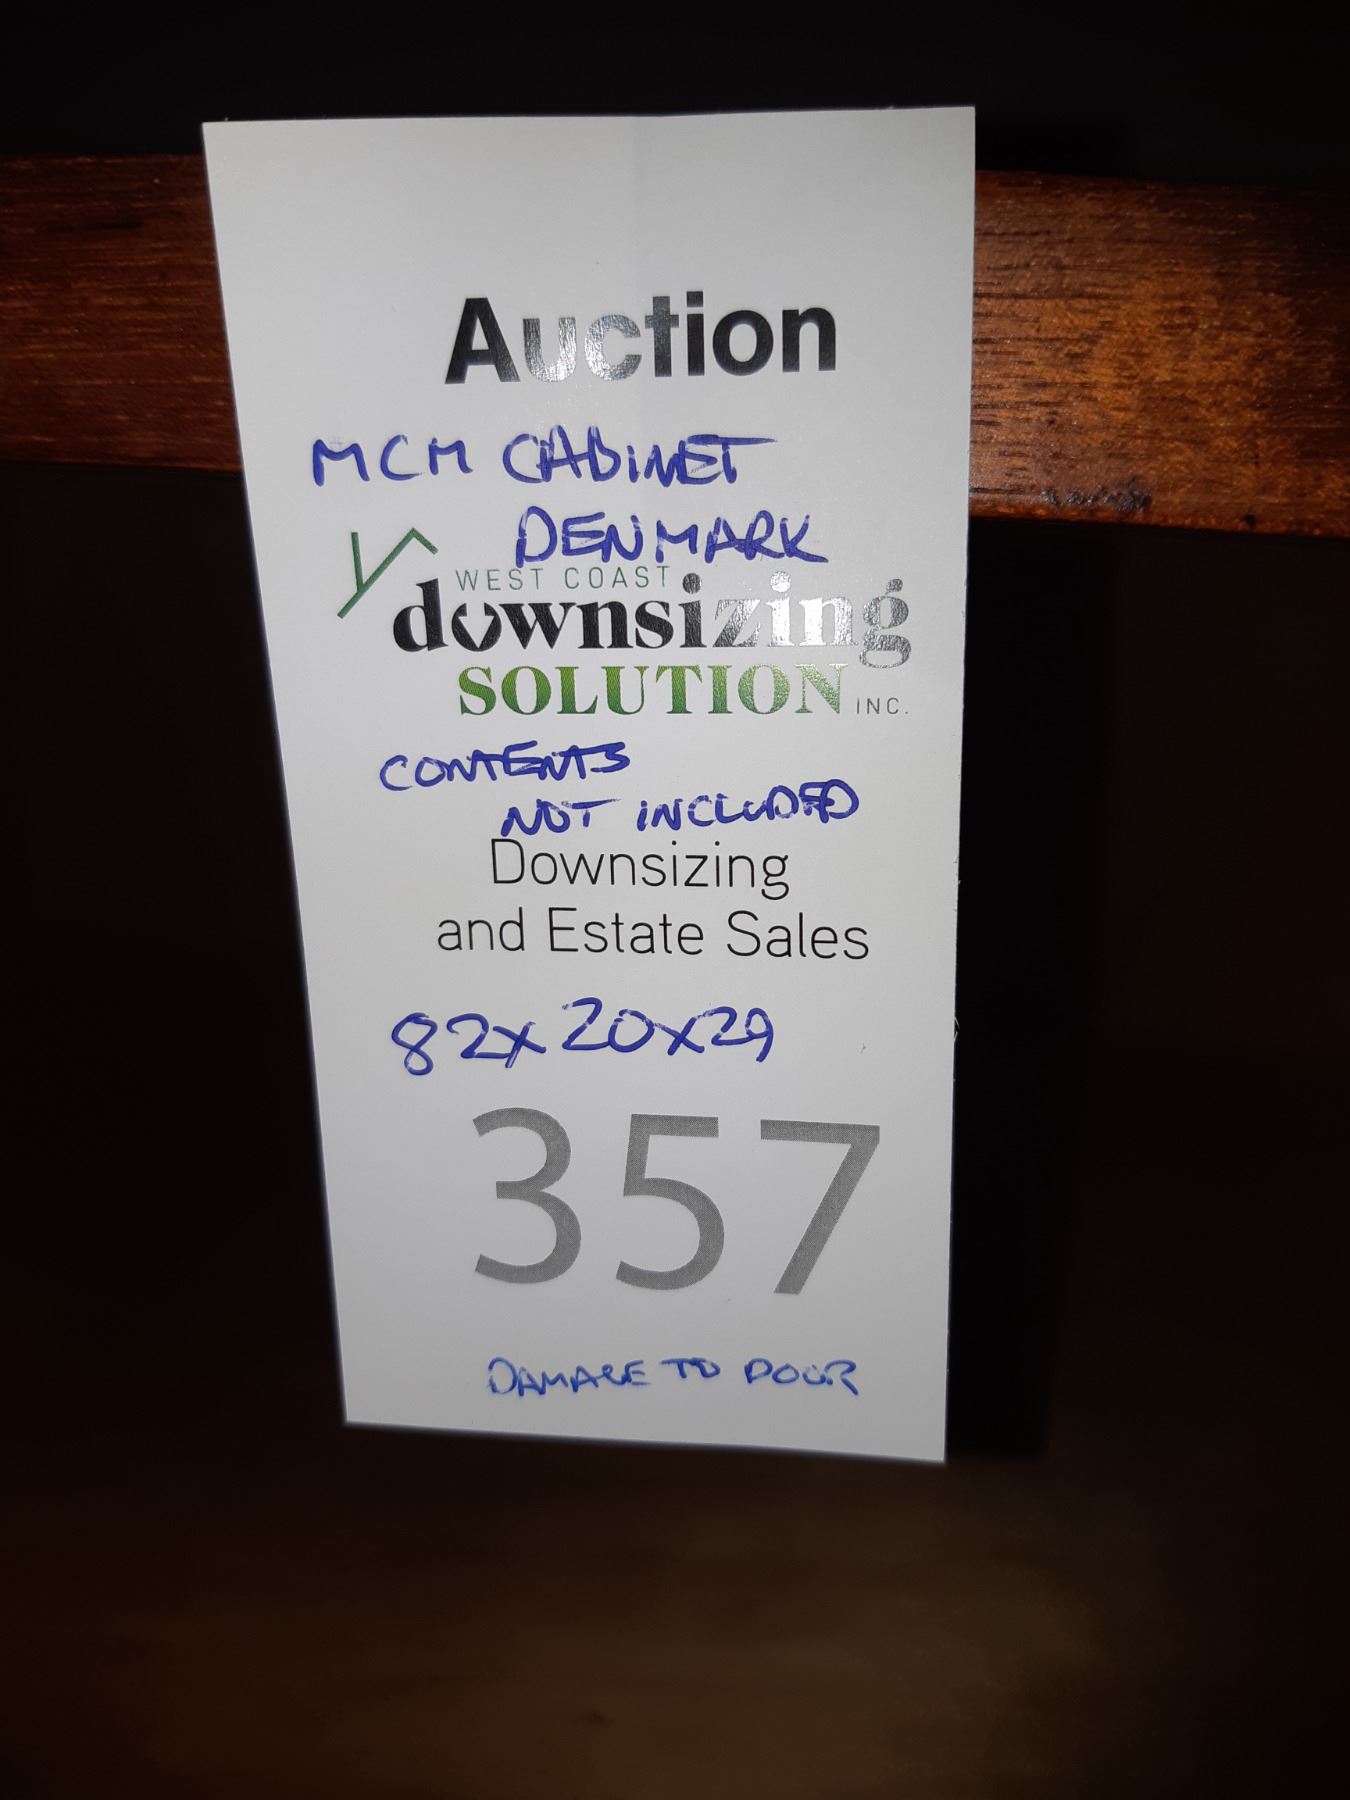 Auction
MCM CABINET
DENMARK
WEST COAST
downsizing
SOLUTION INC.
CONTENTS
NOT INCLUDED
Downsizing
and Estate Sales
82x20x29
357
DAMAGE TO DOOR